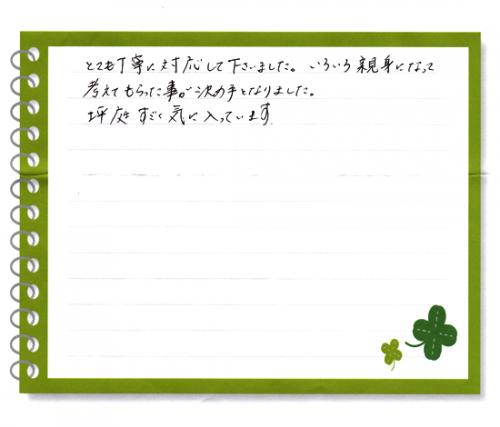 とても丁寧に対応して下さいました。いろいろ親身になって
考えてもらった事が決め手となりました。
坪庭すごく気に入っています